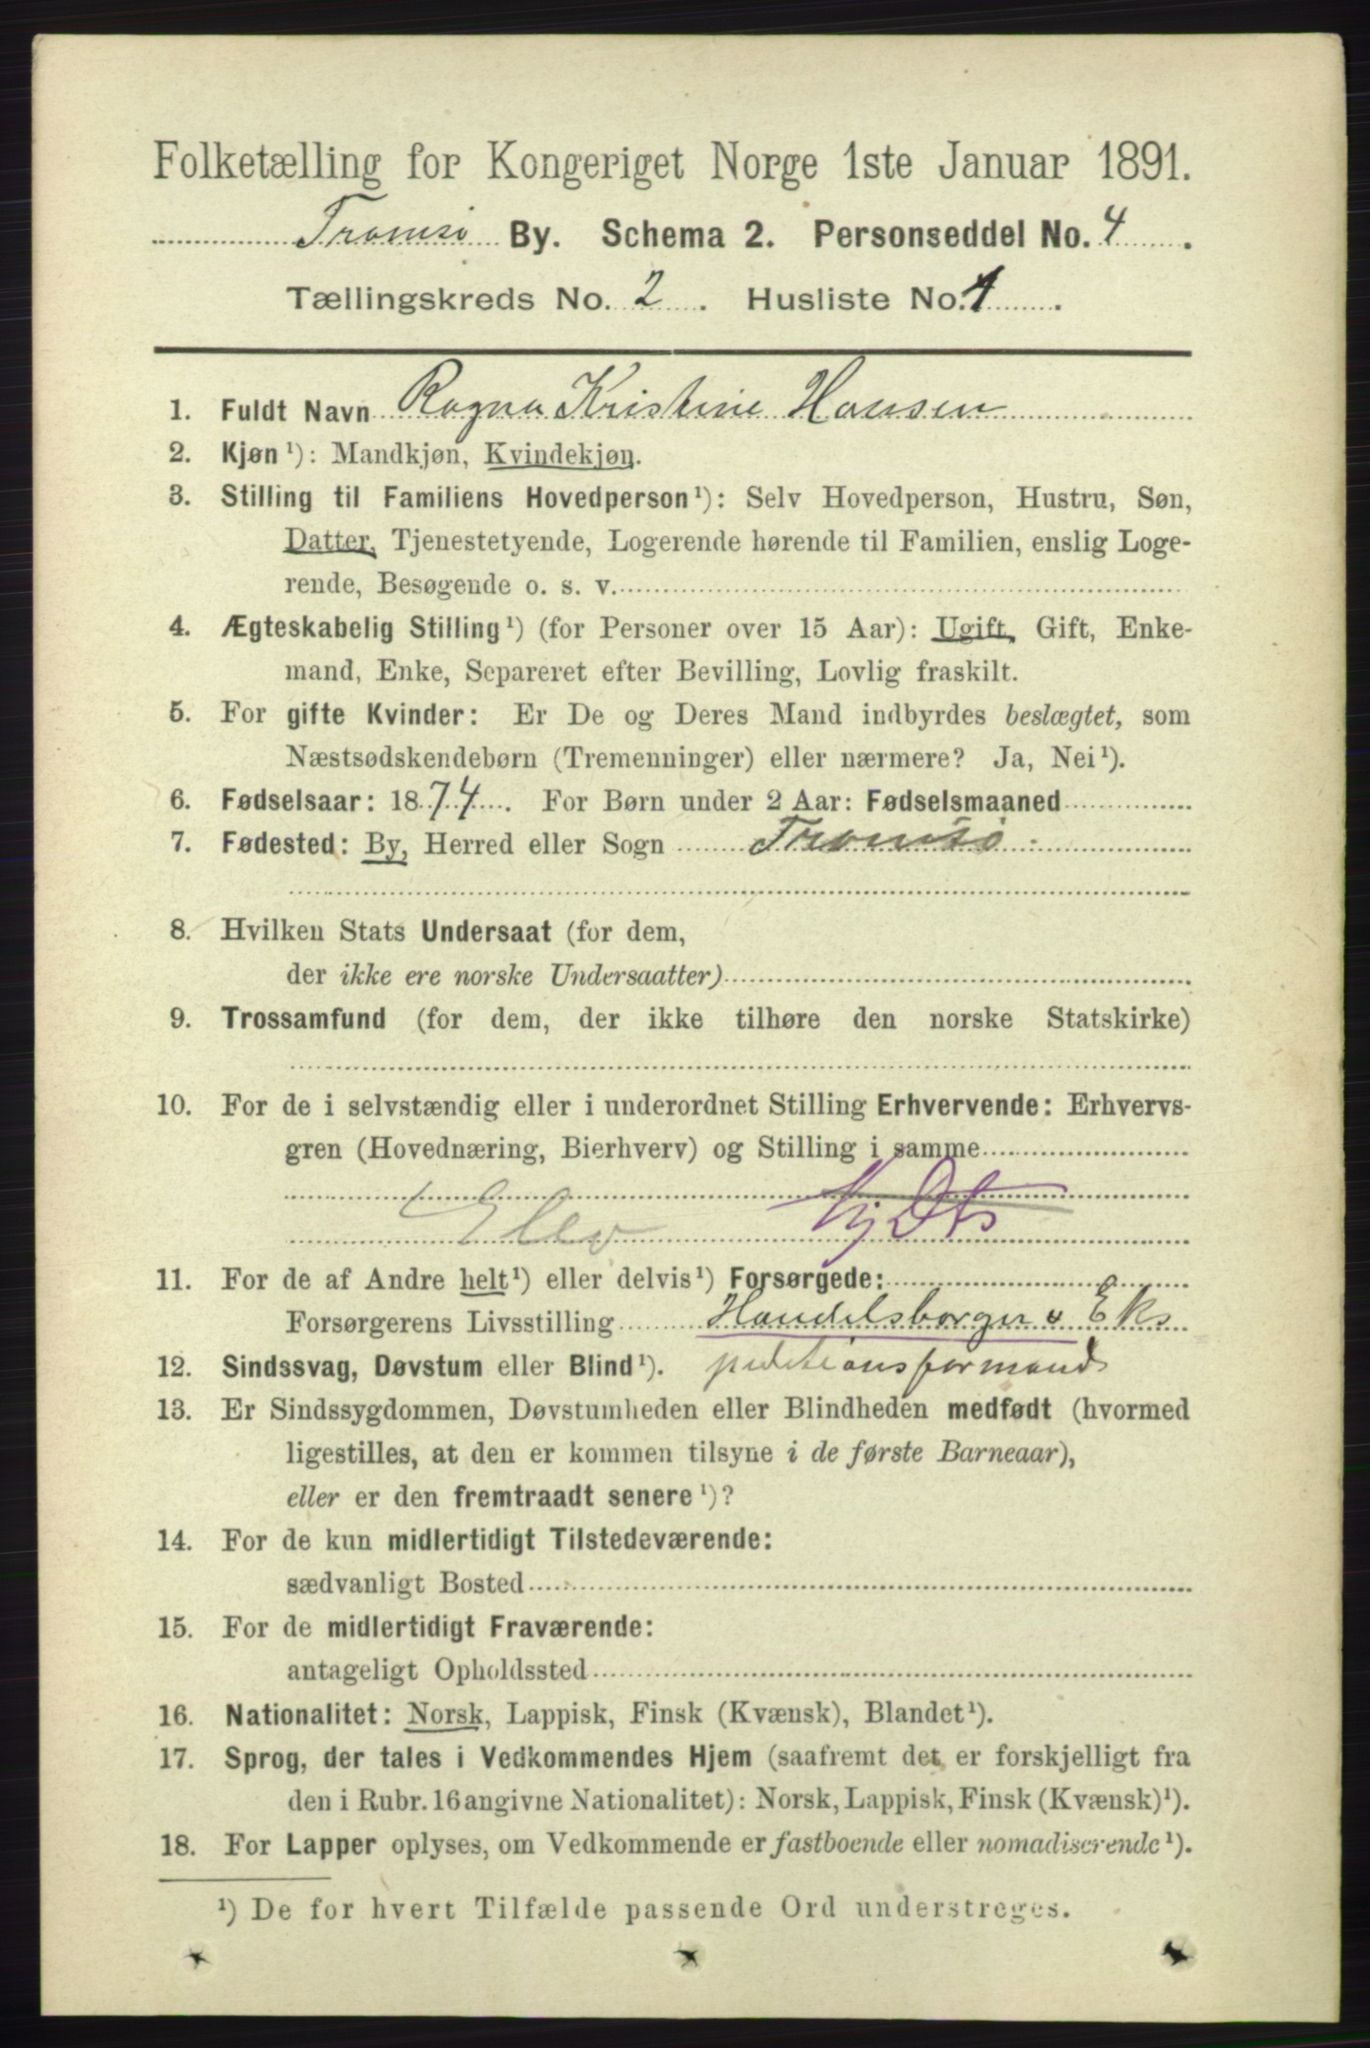 Folketælling for Kongeriget Norge 1ste Januar 1891.
Tromsø By. Schema 2. Personseddel No. 4.
Tællingskreds No. 2. Husliste No. 1.
1. Fuldt Navn Ragna Kristine Hansen
2. Kjøn¹): Mandkjøn, Kvindekjøn.
3. Stilling til Familiens Hovedperson¹): Selv Hovedperson, Hustru, Søn,
Datter, Tjenestetyende, Logerende hørende til Familien, enslig Loge-
rende, Besøgende o. s. v.
4. Ægteskabelig Stilling¹) (for Personer over 15 Aar): Ugift, Gift, Enke-
mand, Enke, Separeret efter Bevilling, Lovlig fraskilt.
5. For gifte Kvinder: Er De og Deres Mand indbyrdes beslægtet, som
Næstsødskendebørn (Tremenninger) eller nærmere? Ja, Nei¹).
6. Fødselsaar: 1874. For Børn under 2 Aar: Fødselsmaaned
7. Fødested: By, Herred eller Sogn Tromsø
8. Hvilken Stats Undersaat (for dem,
der ikke ere norske Undersaatter)
9. Trossamfund (for dem, der ikke tilhøre den norske Statskirke)
10. For de i selvstændig eller i underordnet Stilling Erhvervende: Erhvervs-
gren (Hovednæring, Bierhverv) og Stilling i samme
Elev
11. For de af Andre helt¹) eller delvis¹) Forsørgede:
Forsørgerens Livsstilling Handelsborger & Eks
12. Sindssvag, Døvstum eller Blind¹). peditionsformand
13. Er Sindssygdommen, Døvstumheden eller Blindheden medfødt (hvormed
ligestilles, at den er kommen tilsyne i de første Barneaar),
eller er den fremtraadt senere¹)?
14. For de kun midlertidigt Tilstedeværende:
sædvanligt Bosted
15. For de midlertidigt Fraværende:
antageligt Opholdssted
16. Nationalitet: Norsk, Lappisk, Finsk (Kvænsk), Blandet¹).
17. Sprog, der tales i Vedkommendes Hjem (saafremt det er forskjelligt fra
den i Rubr. 16 angivne Nationalitet): Norsk, Lappisk, Finsk (Kvænsk)¹).
18. For Lapper oplyses, om Vedkommende er fastboende eller nomadiserende¹).
¹) De for hvert Tilfælde passende Ord understreges.